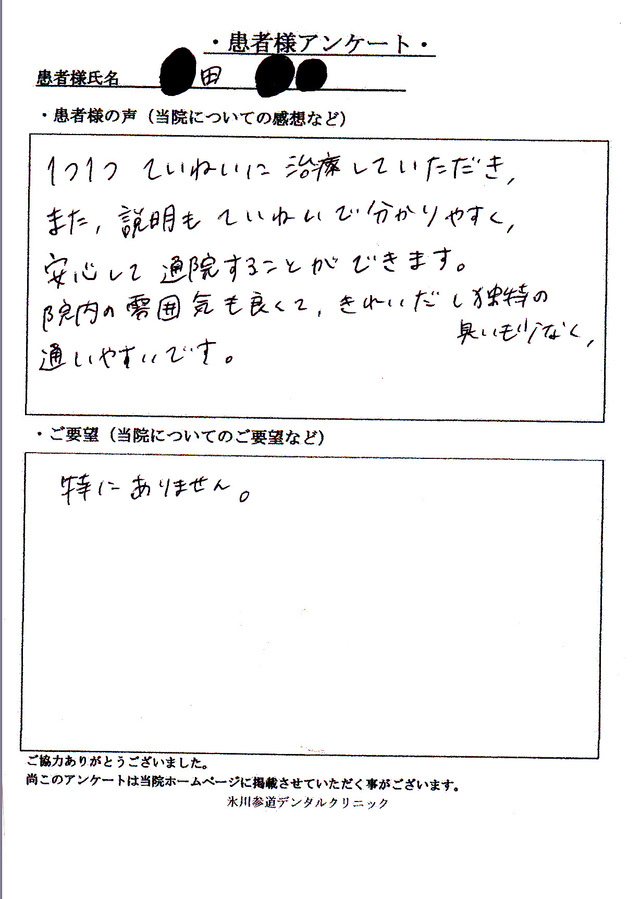 ・患者様アンケート・
患者様氏名 田
・患者様の声（当院についての感想など）
1つ1つ ていねいに 治療していただき,
また, 説明も ていねいで分かりやすく,
安心して 通院することができます。
院内の雰囲気も良くて, きれいだし独特の
臭いも少なく,
通いやすいです。
・ご要望（当院についてのご要望など）
特にありません。
ご協力ありがとうございました。
尚このアンケートは当院ホームページに掲載させていただく事がございます。
氷川参道デンタルクリニック